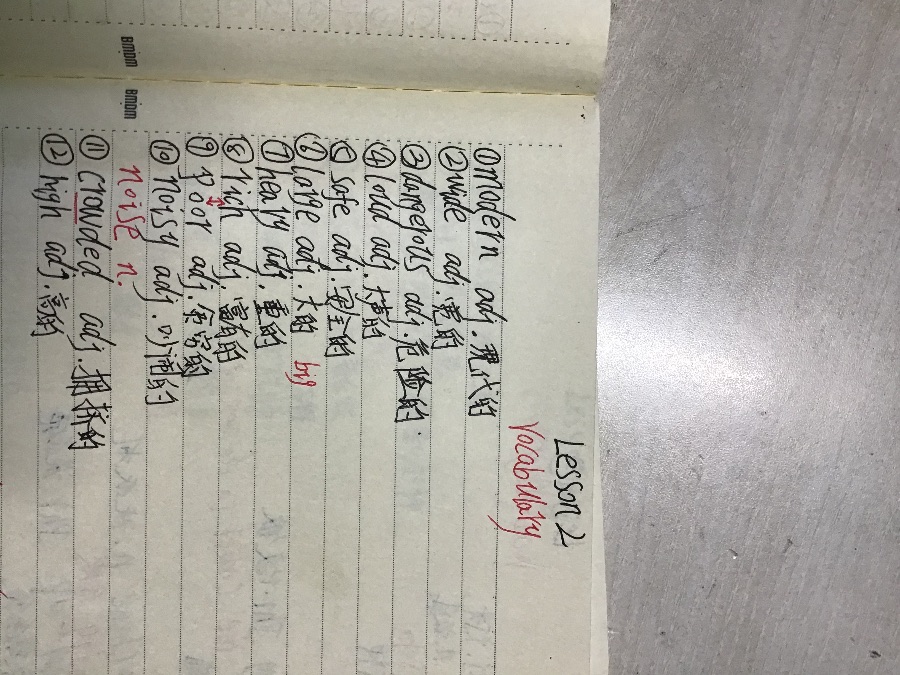 Lesson 2
Vocabulary
① modern adj. 现代的
② wide adj. 宽的
③ dangerous adj. 危险的.
④ loud adj. 大声的
⑤ safe adj. 安全的
⑥ large adj. 大的 big
⑦ heavy adj. 重的
⑧ rich adj. 富有的
↕
⑨ poor adj. 贫穷的
⑩ noisy adj. 吵闹的
noise n.
⑪ crowded adj. 拥挤的
⑫ high adj. 高的
Bmbm Bmbm